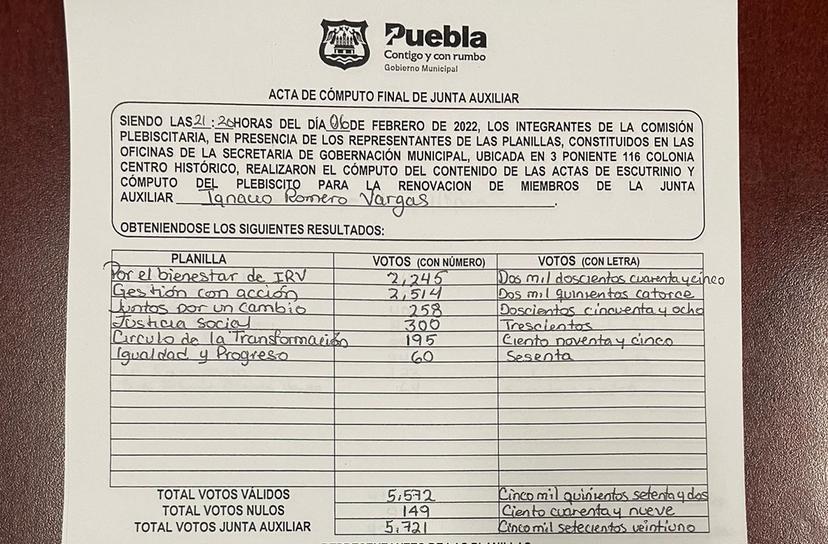 Puebla
Contigo y con rumbo
Gobierno Municipal
ACTA DE CÓMPUTO FINAL DE JUNTA AUXILIAR
SIENDO LAS 21:20 HORAS DEL DÍA 06 DE FEBRERO DE 2022, LOS INTEGRANTES DE LA COMISIÓN
PLEBISCITARIA, EN PRESENCIA DE LOS REPRESENTANTES DE LAS PLANILLAS, CONSTITUIDOS EN LAS
OFICINAS DE LA SECRETARIA DE GOBERNACIÓN MUNICIPAL, UBICADA EN 3 PONIENTE 116 COLONIA
CENTRO HISTÓRICO, REALIZARON EL CÓMPUTO DEL CONTENIDO DE LAS ACTAS DE ESCRUTINIO Y
CÓMPUTO DEL PLEBISCITO PARA LA RENOVACION DE MIEMBROS DE LA JUNTA
AUXILIAR Ignacio Romero Vargas.
OBTENIENDOSE LOS SIGUIENTES RESULTADOS:
PLANILLA VOTOS (CON NÚMERO) VOTOS (CON LETRA)
Por el bienestar de IRV 2,245 Dos mil doscientos cuarenta y cinco
Gestión con acción 2,514 Dos mil quinientos catorce
Juntos por un cambio 258 Doscientos cincuenta y ocho
Justicia social 300 Trescientos
Circulo de la Transformación 195 Ciento noventa y cinco
Igualdad y Progreso 60 Sesenta
TOTAL VOTOS VÁLIDOS 5,572 Cinco mil quinientos setenta y dos
TOTAL VOTOS NULOS 149 Ciento cuarenta y nueve
TOTAL VOTOS JUNTA AUXILIAR 5,721 Cinco mil setecientos veintiuno